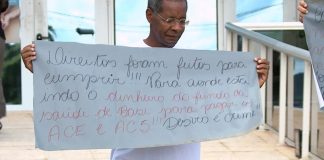 Direitos foram feitos para
cumprir!!! Para aonde está
indo o dinheiro do fundo da
saúde de Base para pagar os
ACE e ACS!!! Desvio é crime!